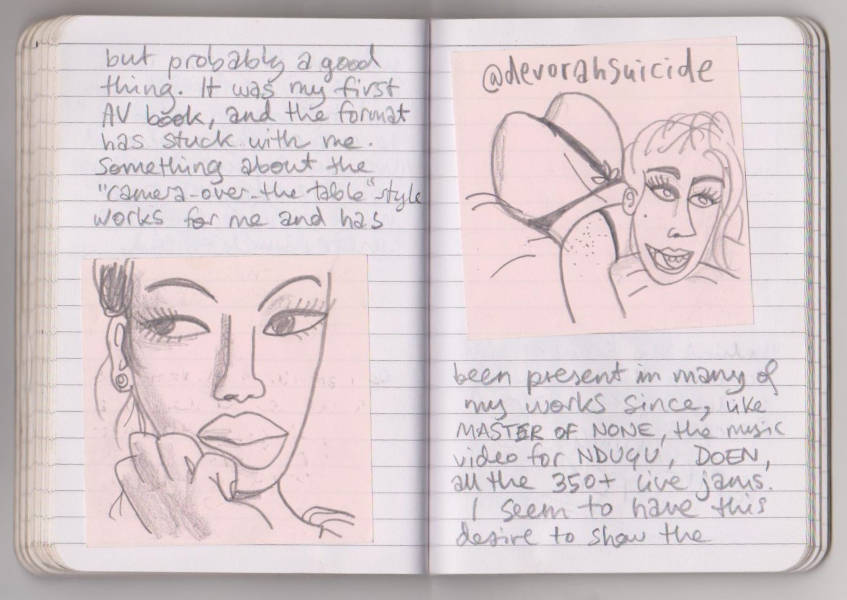 but probably a good
thing. It was my first
AV book, and the format
has stuck with me.
Something about the
"camera-over-the table" style
works for me and has
@devorahsuicide
been present in many of
my works since, like
MASTER OF NONE, the music
video for NDUGU, DOEN,
all the 350+ live jams.
I seem to have this
desire to show the